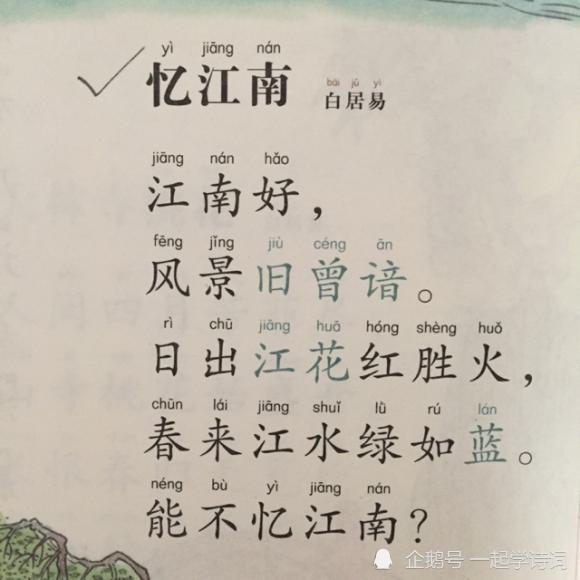 yì jiāng nán
忆江南
bái jū yì
白居易
jiāng nán hǎo
江南好，
fēng jǐng jiù céng ān
风景旧曾谙。
rì chū jiāng huā hóng shèng huǒ
日出江花红胜火，
chūn lái jiāng shuǐ lǜ rú lán
春来江水绿如蓝。
néng bù yì jiāng nán
能不忆江南？
企鹅号 一起学诗词